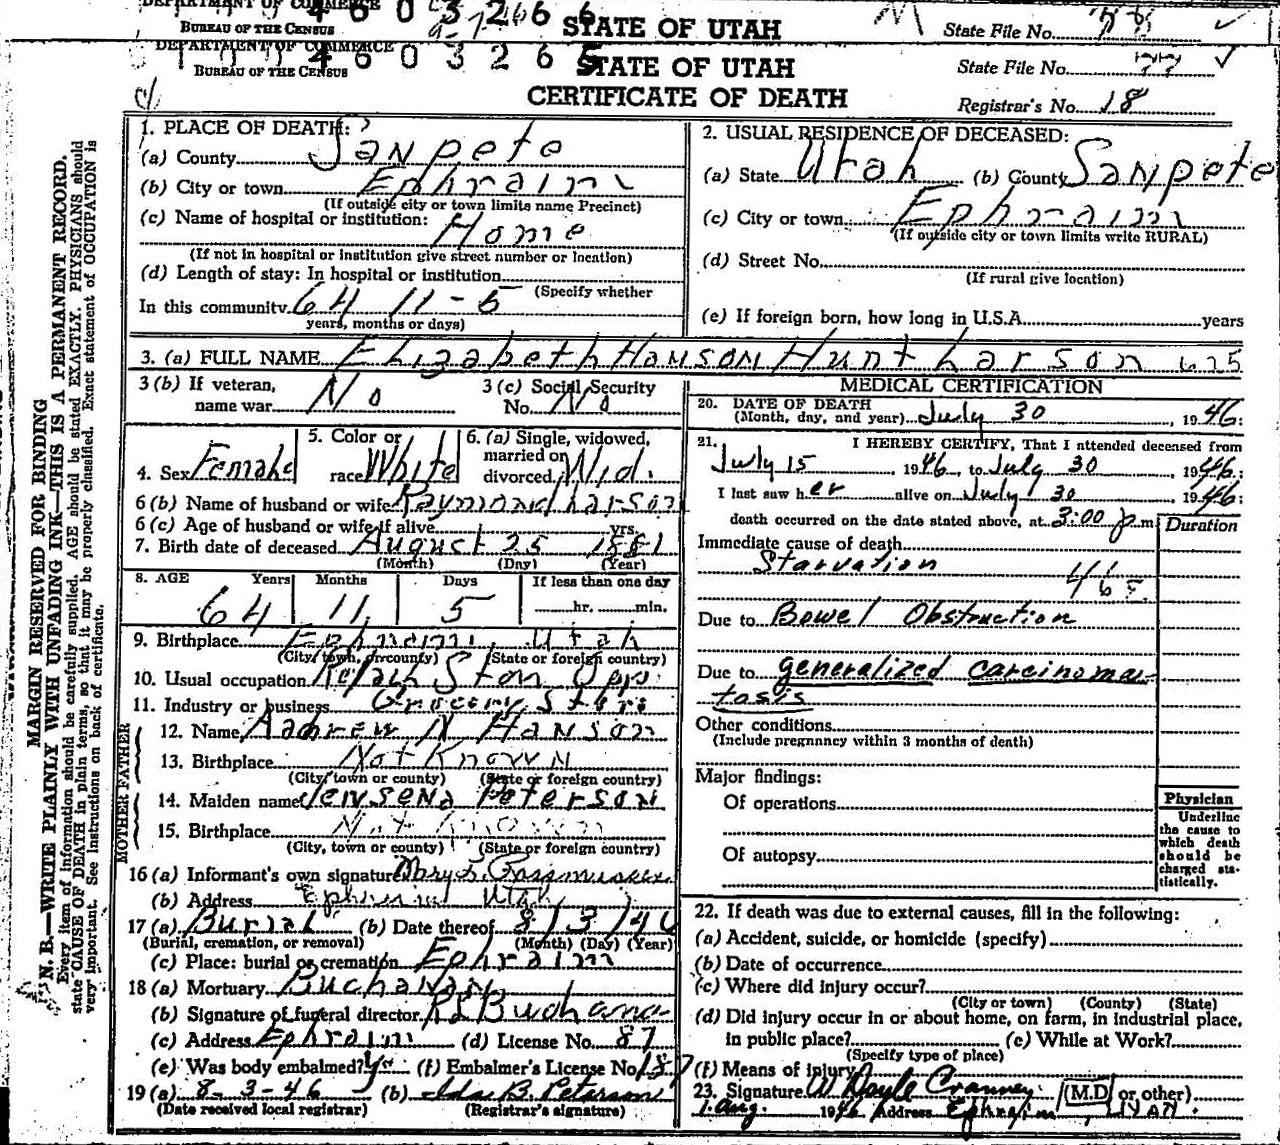 DEPARTMENT OF COMMERCE
BUREAU OF THE CENSUS
STATE OF UTAH
State File No.
DEPARTMENT OF COMMERCE
BUREAU OF THE CENSUS
4 6 0 3 2 6 5
STATE OF UTAH
State File No. 77
CERTIFICATE OF DEATH
Registrar's No. 18
MARGIN RESERVED FOR BINDING
N. B.—WRITE PLAINLY WITH UNFADING INK—THIS IS A PERMANENT RECORD.
Every item of information should be carefully supplied. AGE should be stated EXACTLY. PHYSICIANS should
state CAUSE OF DEATH in plain terms, so that it may be properly classified. Exact statement of OCCUPATION is
very important. See instructions on back of certificate.
1. PLACE OF DEATH:
(a) County Sanpete
(b) City or town Ephraim
(If outside city or town limits name Precinct)
(c) Name of hospital or institution:
Home
(If not in hospital or institution give street number or location)
(d) Length of stay: In hospital or institution
(Specify whether
In this community 64 11-5
years, months or days)
2. USUAL RESIDENCE OF DECEASED:
(a) State Utah (b) County Sanpete
(c) City or town Ephraim
(If outside city or town limits write RURAL)
(d) Street No.
(If rural give location)
(e) If foreign born, how long in U.S.A. years
3. (a) FULL NAME Elizabeth Hanson Hunt Larson 625
3 (b) If veteran,
name war No
3 (c) Social Security
No. No
4. Sex Female
5. Color or
race White
6. (a) Single, widowed,
married or
divorced Wid.
6 (b) Name of husband or wife Raymond Larson
6 (c) Age of husband or wife if alive yrs.
7. Birth date of deceased August 25 1881
(Month) (Day) (Year)
8. AGE Years Months Days If less than one day
64 11 5 hr. min.
9. Birthplace Ephraim Utah
(City, town, or county) (State or foreign country)
10. Usual occupation
11. Industry or business Grocery Store
FATHER
12. Name Andrew N Hanson
13. Birthplace Not Known
(City, town or county) (State or foreign country)
MOTHER
14. Maiden name Jensena Peterson
15. Birthplace Not Known
(City, town or county) (State or foreign country)
16 (a) Informant's own signature Mary L. Rassmussen
(b) Address Ephraim Utah
17 (a) Burial (b) Date thereof 8/3/46
(Burial, cremation, or removal) (Month) (Day) (Year)
(c) Place: burial or cremation Ephraim
18 (a) Mortuary Buchanan
(b) Signature of funeral director
(c) Address Ephraim (d) License No. 87
(e) Was body embalmed? yes (f) Embalmer's License No. 157
19 (a) 8-3-46 (b) Ida B. Peterson
(Date received local registrar) (Registrar's signature)
MEDICAL CERTIFICATION
20. DATE OF DEATH
(Month, day, and year) July 30, 1946:
21. I HEREBY CERTIFY, That I attended deceased from
July 15 1946, to July 30 1946:
I last saw her alive on July 30 1946:
death occurred on the date stated above, at 3:00 p.m
Duration
Immediate cause of death
Starvation
46
Due to Bowel Obstruction
Due to generalized carcinoma-
tosis
Other conditions
(Include pregnancy within 3 months of death)
Major findings:
Of operations
Of autopsy
Physician
Underline
the cause to
which death
should be
charged sta-
tistically.
22. If death was due to external causes, fill in the following:
(a) Accident, suicide, or homicide (specify)
(b) Date of occurrence
(c) Where did injury occur?
(City or town) (County) (State)
(d) Did injury occur in or about home, on farm, in industrial place,
in public place? (e) While at Work?
(Specify type of place)
(f) Means of injury
23. Signature W Doyle Cranney (M.D. or other)
1. Aug. 1946 Address Ephraim, Utah.